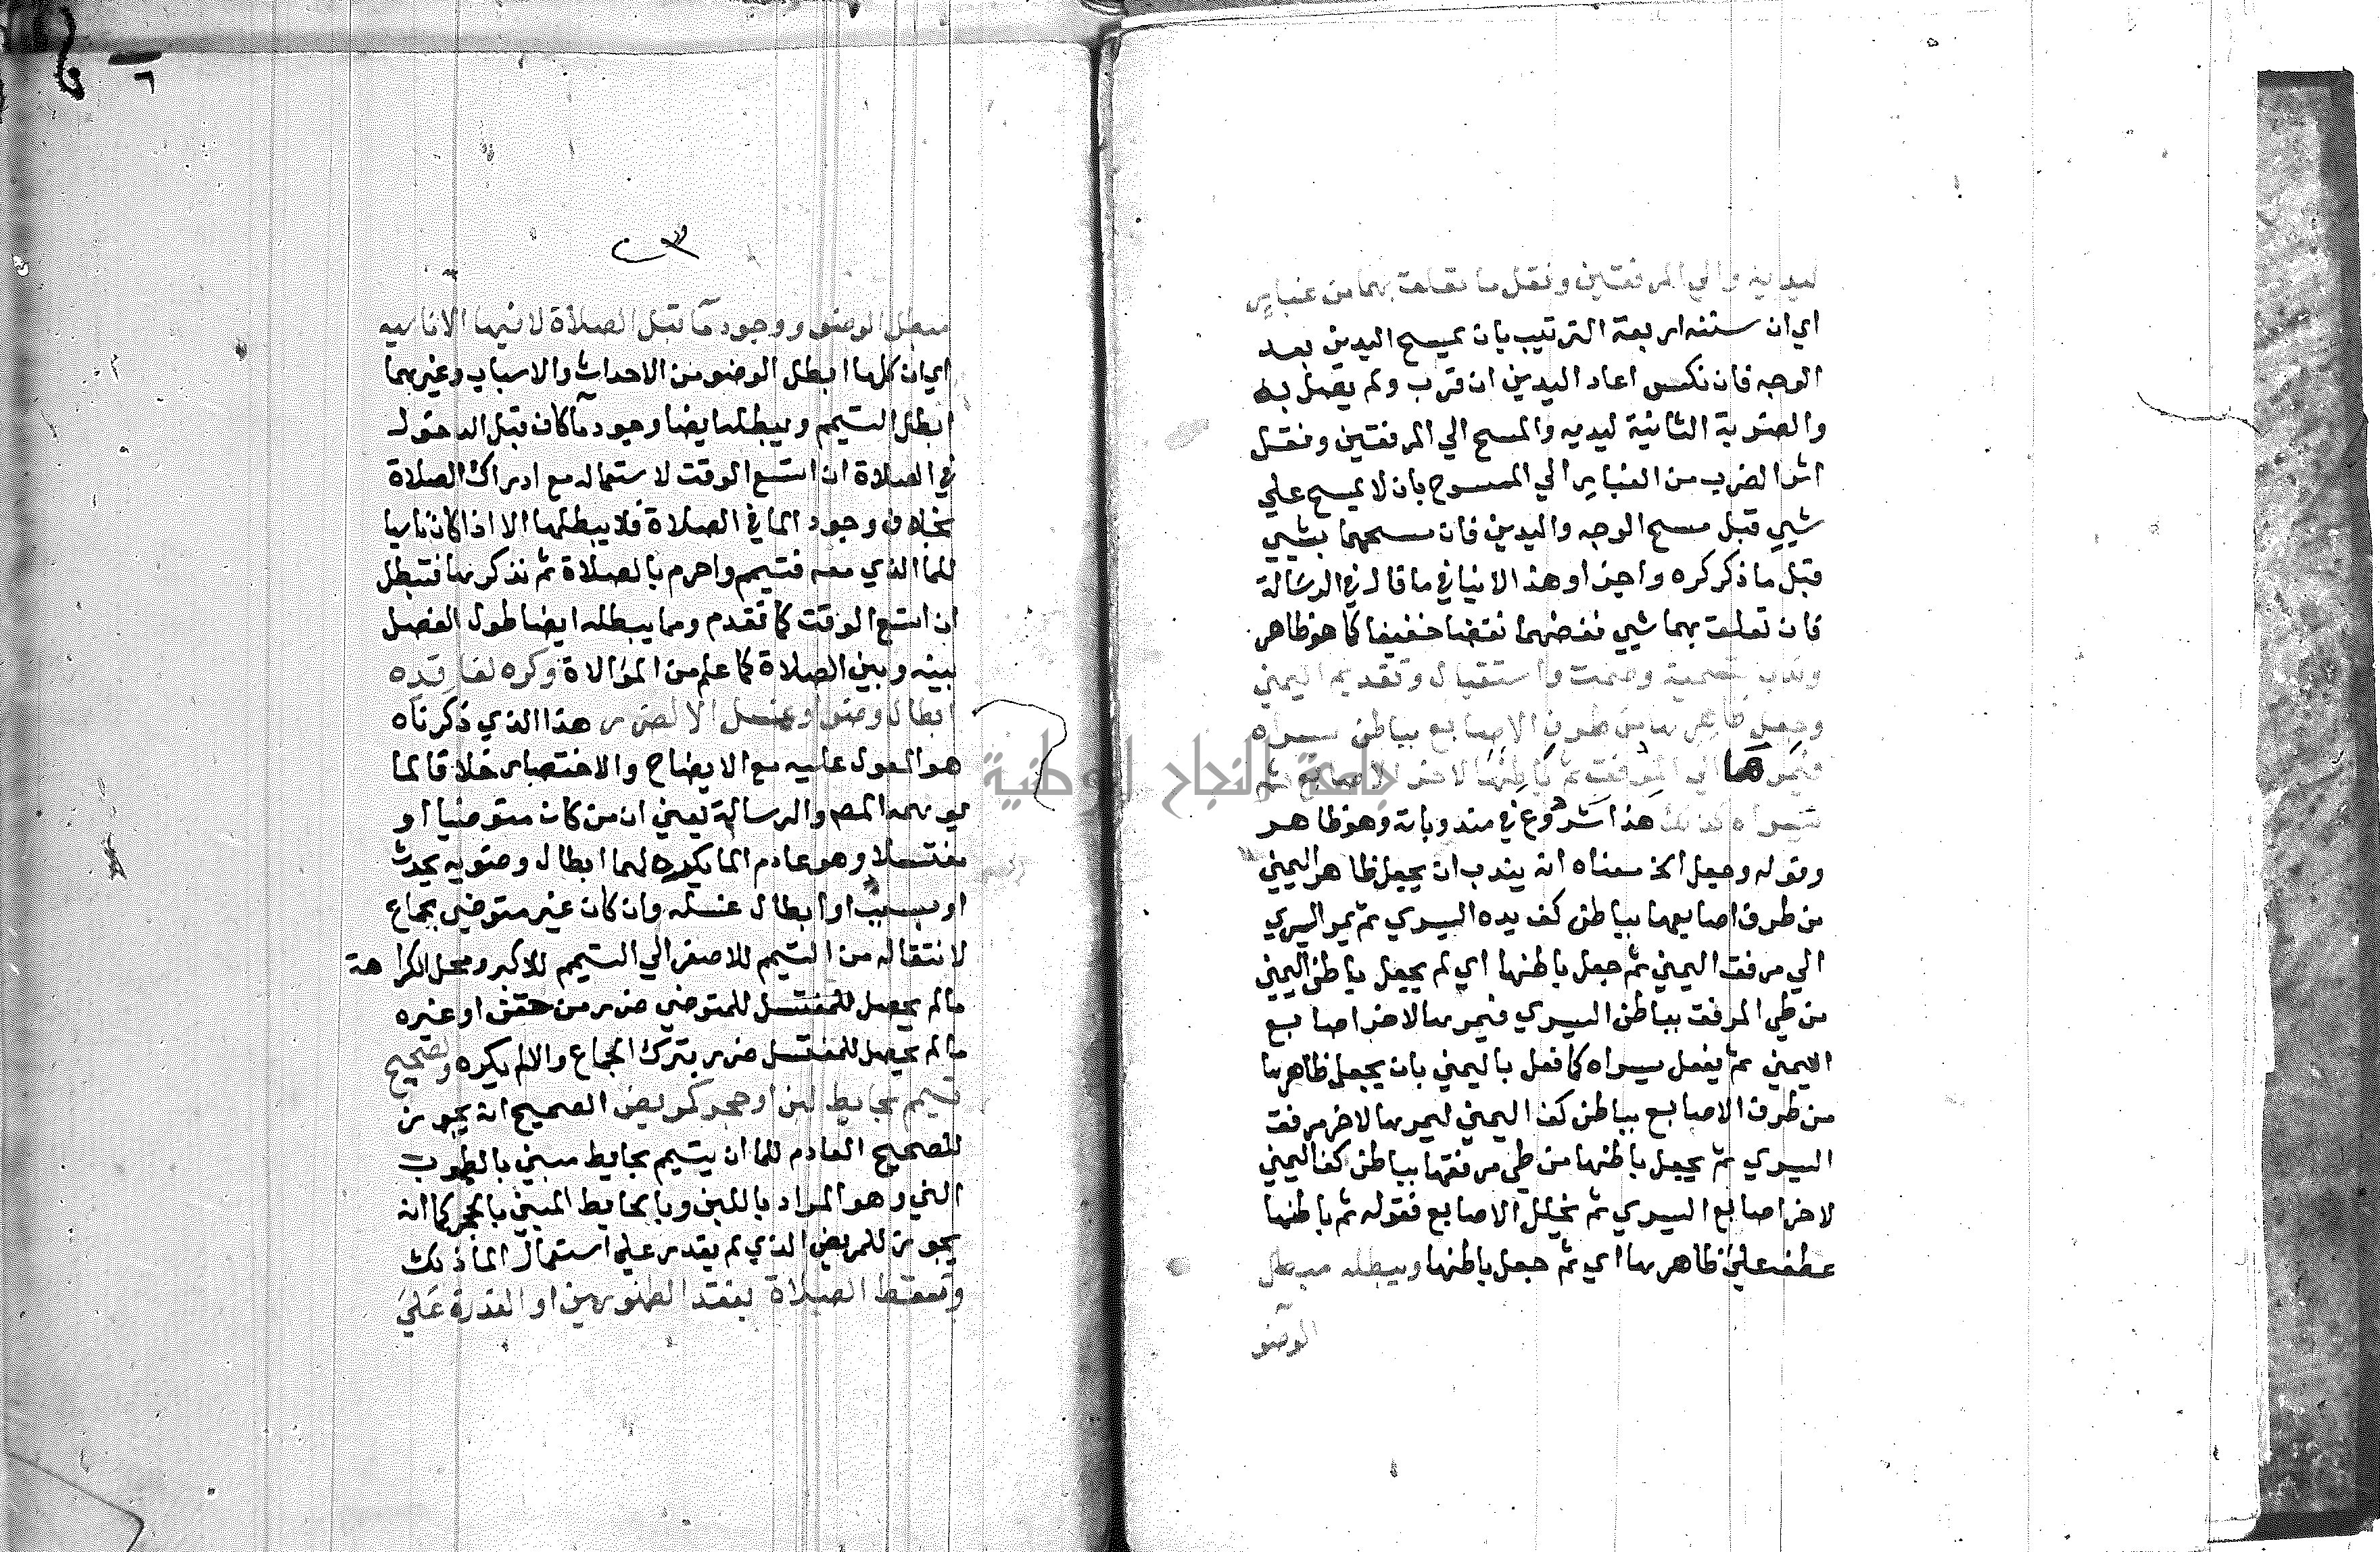 ليديه والي المرفقين ونقل ما تعلق بهما من غبار
اي ان سننه اربعة الترتيب بان يمسح اليدين بعد
الوجه فان نكس اعاد اليدين ان قرب ولم يصل به
والضربة الثانية ليديه والمسح الي المرفقين ونقل
اثر الضرب من الغبار الي الممسوح بان لا يمسح علي
شيي قبل مسح الوجه واليدين فان مسحهما بشيي
قبل ما ذكر كره واجزا وهذا لا ينافي ما قال في الرسالة
فان تعلق بهما شيي نفضهما نفضا خفيفا كما هو ظاهر
وندب تسمية وصمت واستقبال وتقديم اليمني
وجعل ظاهرها من طرف الاصابع بباطن يسراه
فيمرها الي المرفق ثم باطنها لاخر الاصابع ثم
يسراه كذلك هذا شروع في مندوباته وهو ظاهر
وقوله وجعل الخ معناه انه يندب ان يجعل ظاهر اليمني
من طرف اصابعها بباطن كف يده اليسري ثم يمر اليسري
الي مرفق اليمني ثم جعل باطنها اي ثم يجعل باطن اليمني
من طي المرفق بباطن اليسري فيمرها لاخر اصابع
اليمني ثم يفعل يسراه كما فعل باليمني بان يجعل ظاهرها
من طرف الاصابع بباطن كف اليمني ليمرها لاخر مرفق
اليسري ثم يجعل باطنها من طي مرفقها بباطن كف اليمني
لاخر اصابع اليسري ثم يخلل الاصابع فقوله ثم باطنها
عطف علي ظاهرها اي ثم جعل باطنها ويبطله مبطل
الوضو
مبطل الوضو ووجود ما قبل الصلاة لا فيها الا ناسيه
اي ان كلما ابطل الوضو من الاحداث والاسباب وغيرهما
ابطل التيمم ويبطله ايضا وجود ما كان قبل الدخول
في الصلاة ان اتسع الوقت لاستعماله مع ادراك الصلاة
بخلاف وجود الما في الصلاة فلا يبطلها الا اذا كان ناسيا
للما الذي معه فتيمم واحرم بالصلاة ثم تذكره فتبطل
ان اتسع الوقت كما تقدم ومما يبطله ايضا طول الفصل
بينه وبين الصلاة كما علم من الموالاة وكره لفاقده
ابطال وضو او غسل الا لضرر هذا الذي ذكرناه
هو المعول عليه مع الايضاح والاختصار خلافا لما
يوهمه المص والرسالة يعني ان من كان متوضيا او
مغتسلا وهو عادم الما يكره له ابطال وضويه بحدث
او بسبب او ابطال غسله وان كان غير متوضي بجماع
لانتقاله من التيمم للاصغر الي التيمم للاكبر ومحل الكراهة
ما لم يحصل للمتوضي ضرر من حقن او غيره
ما لم يحصل للمغتسل ضرر بترك الجماع والا لم يكره ولصحيح
تيمم بحايط لبن او حجر كمريض الصحيح انه يجوز
للصحيح العادم للما ان يتيمم بحايط مبني بالطوب
الني وهو المراد باللبن وبالحايط المبني بالحجر كما انه
يجوز للمريض الذي لم يقدر علي استعمال الما ذلك
وتسقط الصلاة بفقد الطهورين او القدرة علي
جامعة النجاح الوطنية